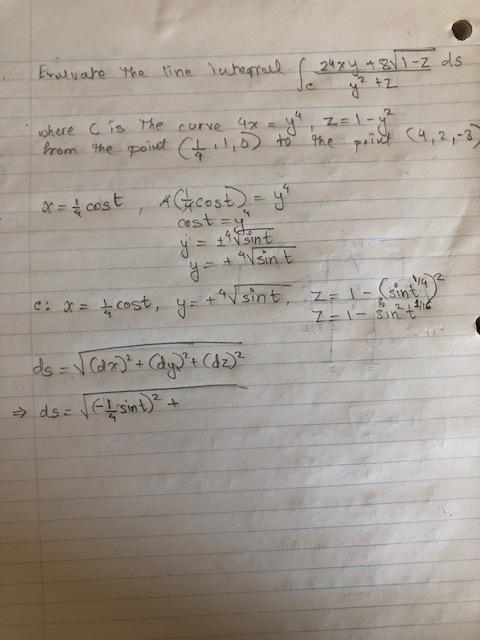 Evaluate the line integral ∫_C (24xy + 8√(1-z))/(y² + z) ds
where C is the curve 4x = y⁴, z = 1 - y²
from the point (1/4, 1, 0) to the point (4, 2, -3)
x = 1/4 cost, 4(1/4 cost) = y⁴
cost = y⁴
y = ±⁴√sint
y = +⁴√sint
c: x = 1/4 cost, y = +⁴√sint, z = 1 - (sint^(1/4))²
z = 1 - sin²t^(1/16)
ds = √((dx)² + (dy)² + (dz)²)
⇒ ds = √((-1/4 sint)² +